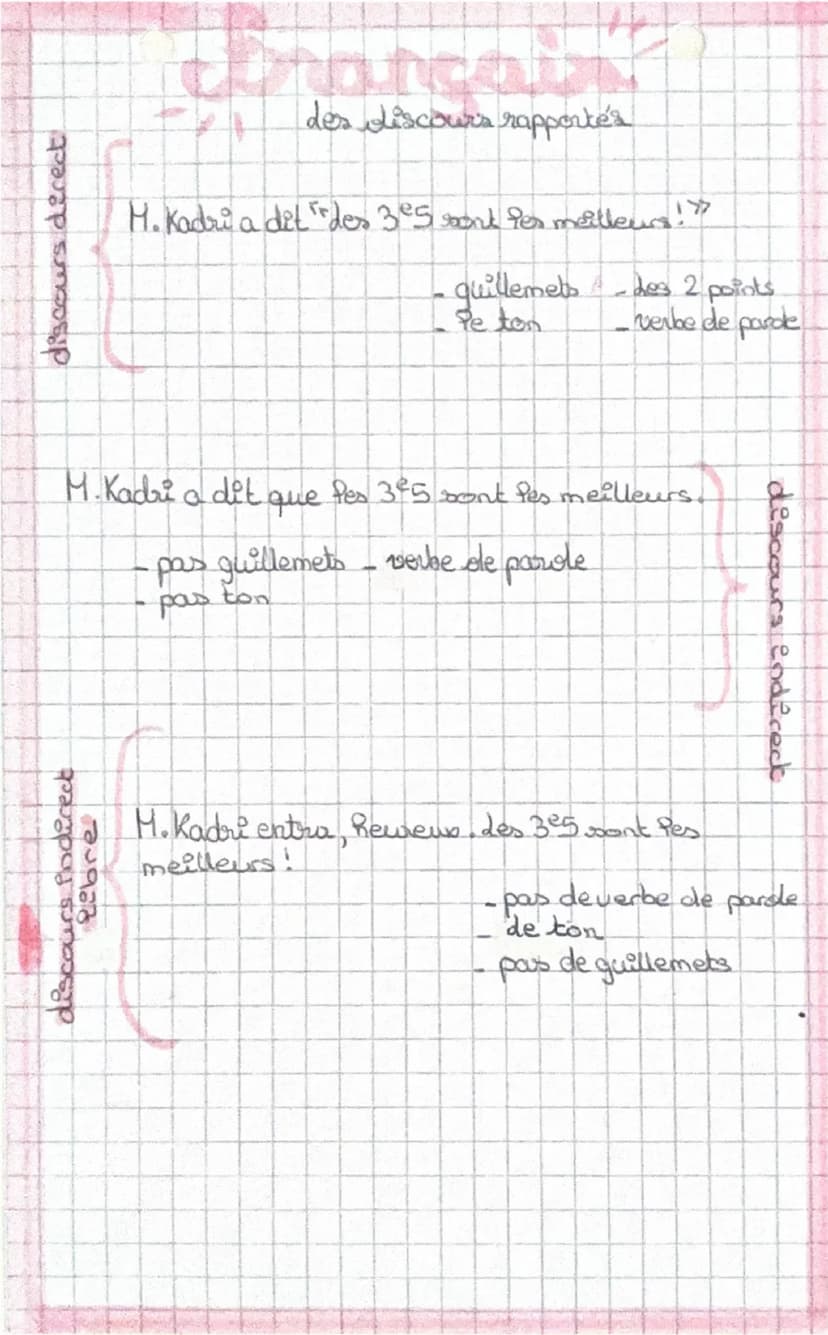 français
des discours rapportés
discours direct
M. Kadri a dit "des 3e5 sont les meilleurs!"
- guillemets - des 2 points
- le ton - verbe de parole
M. Kadri a dit que les 3e5 sont les meilleurs.
- pas guillemets - verbe de parole
- pas ton
discours indirect
discours indirect
libre
M. Kadri entra, heureux. des 3e5 sont les
meilleurs!
- pas de verbe de parole
- de ton
- pas de guillemets